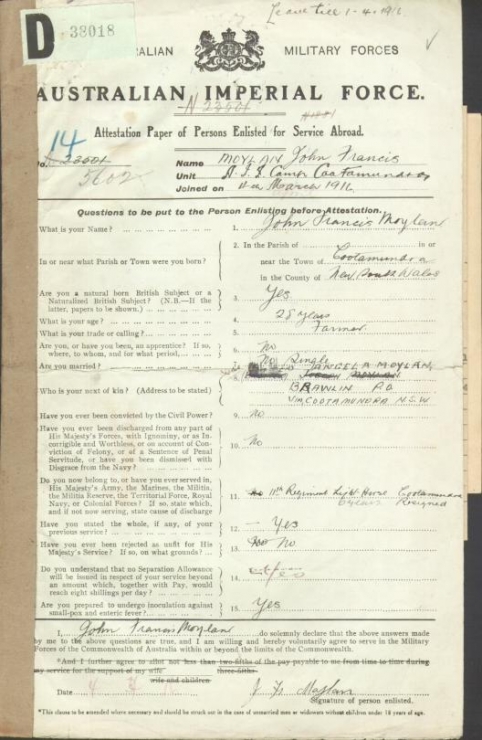 Leave till 1-4-1916
D 38018
AUSTRALIAN MILITARY FORCES
AUSTRALIAN IMPERIAL FORCE.
N 23501
Attestation Paper of Persons Enlisted for Service Abroad.
14
No. 23501 Name MOYLAN John Francis
5602 Unit Camp Cootamundra
Joined on March 1916
Questions to be put to the Person Enlisting before Attestation.
What is your Name? 1. John Francis Moylan
2. In the Parish of in or
In or near what Parish or Town were you born? near the Town of Cootamundra
in the County of New South Wales
Are you a natural born British Subject or a
Naturalized British Subject? (N.B.—If the 3. Yes
latter, papers to be shown.)
What is your age? 4. 28 years
What is your trade or calling? 5. Farmer
Are you, or have you been, an apprentice? If so, 6. No
where, to whom, and for what period,
Are you married? Single
MOYLAN,
Who is your next of kin? (Address to be stated) BRAWLIN P.O.
VIA COOTAMUNDRA N.S.W
Have you ever been convicted by the Civil Power? 9. No
Have you ever been discharged from any part of
His Majesty's Forces, with Ignominy, or as In-
corrigible and Worthless, or on account of Con- 10. No
viction of Felony, or of a Sentence of Penal
Servitude, or have you been dismissed with
Disgrace from the Navy?
Do you now belong to, or have you ever served in,
His Majesty's Army, the Marines, the Militia,
the Militia Reserve, the Territorial Force, Royal 11. No 11th Regiment Light Horse Cootamundra
Navy, or Colonial Forces? If so, state which, years Resigned
and if not now serving, state cause of discharge
Have you stated the whole, if any, of your 12. Yes
previous service?
Have you ever been rejected as unfit for His 13. No No
Majesty's Service? If so, on what grounds?
Do you understand that no Separation Allowance
will be issued in respect of your service beyond 14. Yes
an amount which, together with Pay, would
reach eight shillings per day?
Are you prepared to undergo inoculation against 15. Yes
small-pox and enteric fever?
I, John Francis Moylan do solemnly declare that the above answers made
by me to the above questions are true, and I am willing and hereby voluntarily agree to serve in the Military
Forces of the Commonwealth of Australia within or beyond the limits of the Commonwealth.
*And I further agree to allot not less than two-fifths of the pay payable to me from time to time during
three-fifths
my service for the support of my wife
wife and children
Date J F Moylan
Signature of person enlisted.
*This clause to be amended where necessary and should be struck out in the case of unmarried men or widowers without children under 18 years of age.